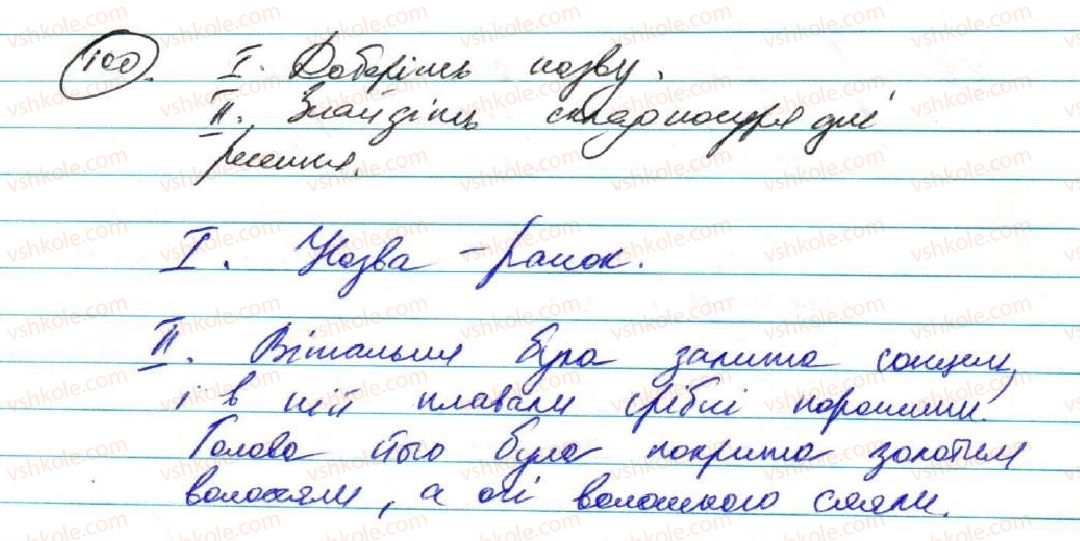 100. I. Доберіть назву.
II. Знайдіть складносурядні
речення.
I. Назва – ранок.
II. Вітальня була залита сонцем,
і в ній плавали срібні порошини.
Голова його була покрита золотим
волоссям, а очі волошками сяяли.